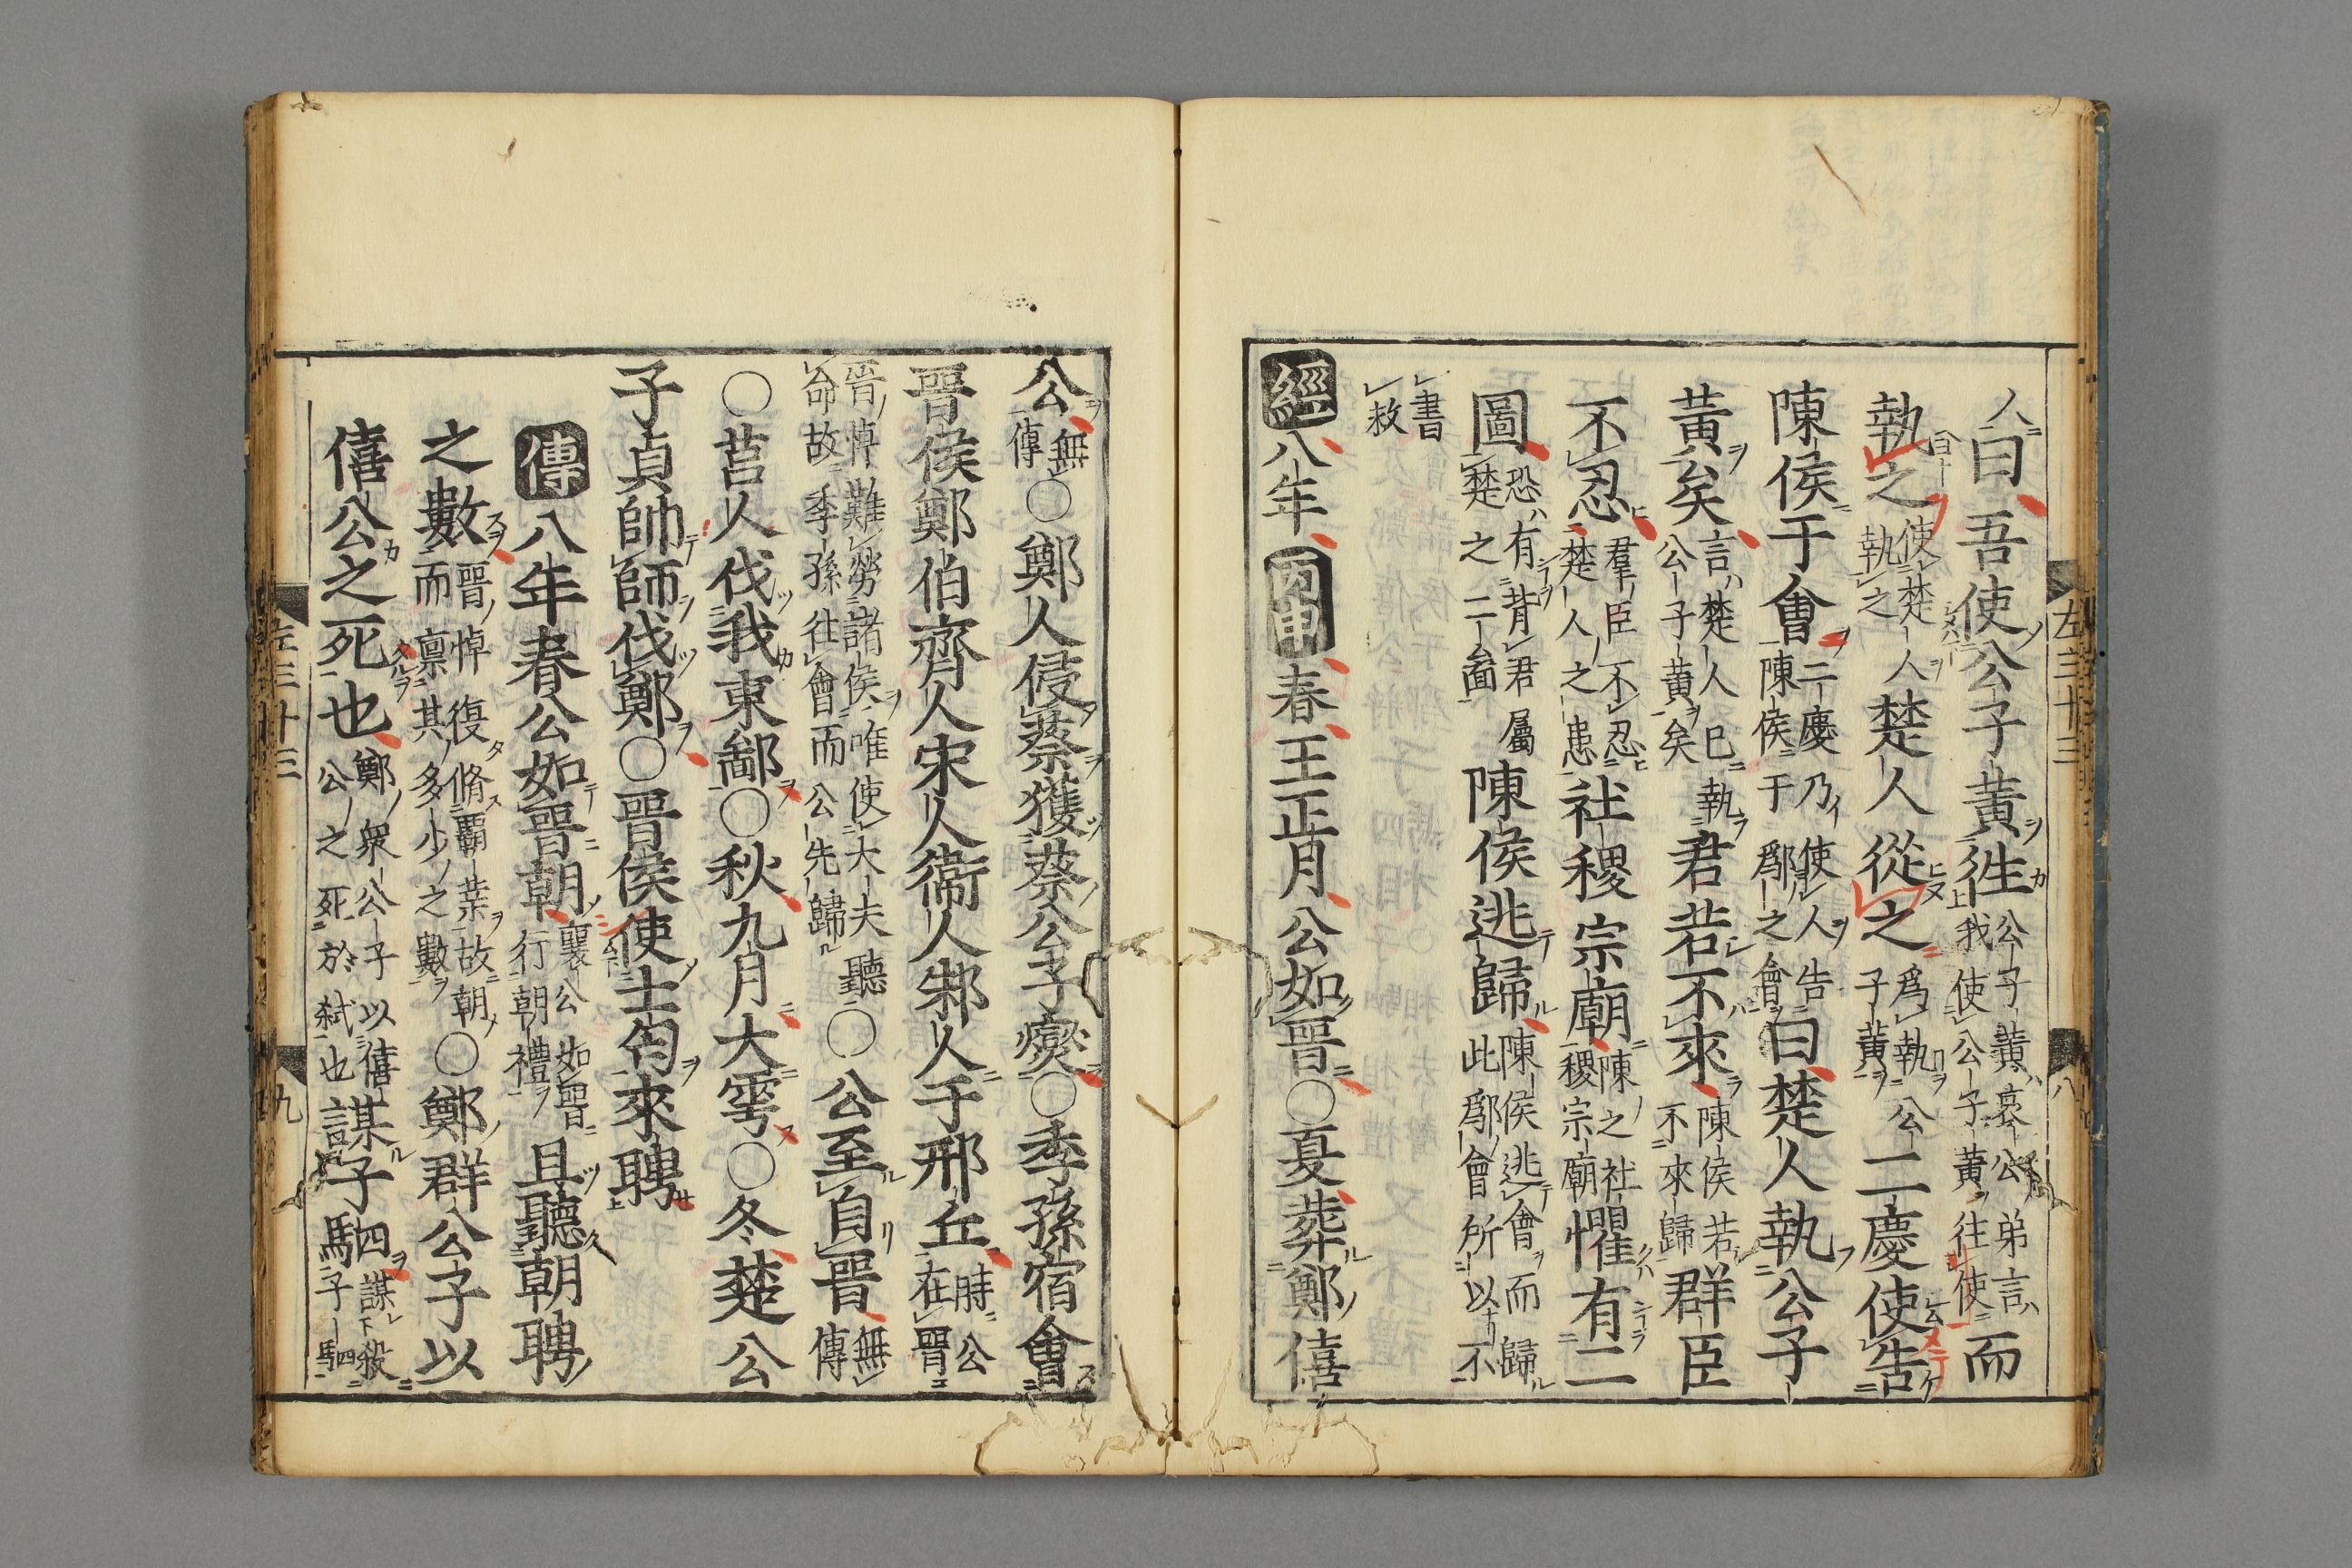 人曰吾使公子黃往公子黃哀公弟言我使公子黃往使而
執之使楚人執之楚人從之爲執公子黃二慶使告
陳侯于會二慶乃使人告陳侯于鄬之會曰楚人執公子
黃矣言楚人已執公子黃矣君若不來陳侯若不來歸群臣
不忍羣臣不忍楚人之患社稷宗廟陳之社稷宗廟懼有二
圖恐有背君屬楚之二圖陳侯逃歸陳侯逃會而歸此鄬會所以不
書救
經八年丙申春王正月公如晉○夏葬鄭僖
左三十三
八
公無傳○鄭人侵蔡獲蔡公子燮○季孫宿會
晉侯鄭伯齊人宋人衞人邾人于邢丘時公在晉
晉悼難勞諸侯唯使大夫聽命故季孫往會而公先歸○公至自晉無傳
○莒人伐我東鄙○秋九月大雩○冬楚公
子貞帥師伐鄭○晉侯使士匄來聘
傳八年春公如晉朝襄公如晉行朝禮且聽朝聘
之數晉悼復脩霸業故朝而稟其多少之數○鄭群公子以
僖公之死也鄭衆公子以僖公之死於弑也謀子駟謀殺子駟
左三十三
九